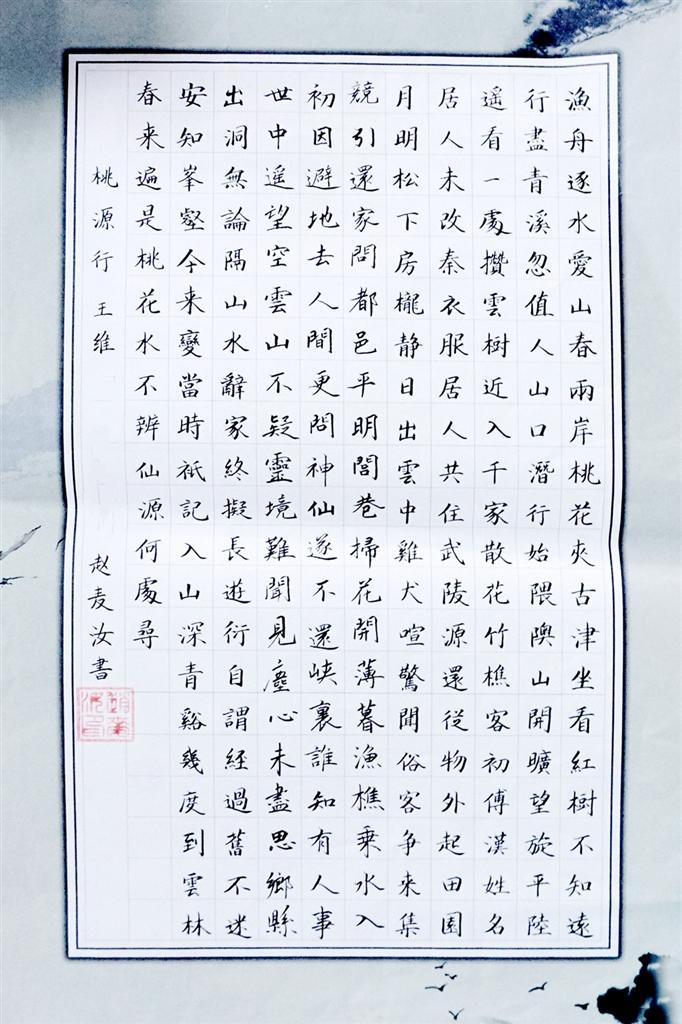 漁舟逐水愛山春兩岸桃花夾古津坐看紅樹不知遠
行盡青溪忽值人山口潛行始隈隩山開曠望旋平陸
遥看一處攢雲樹近入千家散花竹樵客初傳漢姓名
居人未改秦衣服居人共住武陵源還從物外起田園
月明松下房櫳静日出雲中雞犬喧驚聞俗客争来集
競引還家問都邑平明閭巷掃花開薄暮漁樵乘水入
初因避地去人間更問神仙遂不還峡裏誰知有人事
世中遥望空雲山不疑靈境難聞見塵心未盡思鄉縣
出洞無論隔山水辭家終擬長遊衍自謂經過舊不迷
安知峯壑今来變當時衹記入山深青谿幾度到雲林
春来遍是桃花水不辨仙源何處尋
桃源行 王维 赵麦汝書